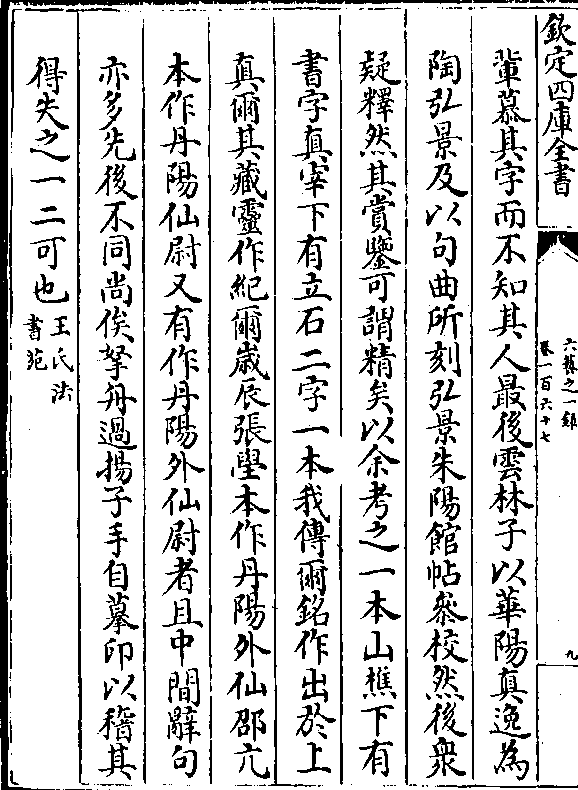 欽定四庫全書
六藝之一錄
卷一百六十七
九
輩慕其字而不知其人最後雲林子以華陽真逸為
陶弘景及以句曲所刻弘景朱陽館帖叅校然後衆
疑釋然其賞鑒可謂精矣以余考之一本山樵下有
書字真宰下有立石二字一本我傳爾銘作出於上
真爾其藏靈作紀爾歲辰張壆本作丹陽外仙邵亢
本作丹陽仙尉又有作丹陽外仙尉者且中間辭句
亦多先後不同尚俟拏舟過揚子手自摹印以稽其
得失之一二可也王氏法
書苑